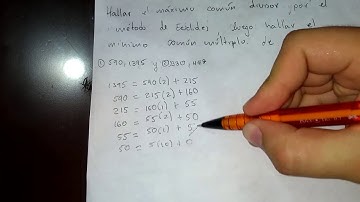 Hallar el máximo común divisor por el
método de Euclides, luego hallar el
mínimo común múltiplo de
① 590, 1395 y ②
1395 = 590(2) + 215
590 = 215(2) + 160
215 = 160(1) + 55
160 = 55(2) + 50
55 = 50(1) + 5
50 = 5(10) + 0